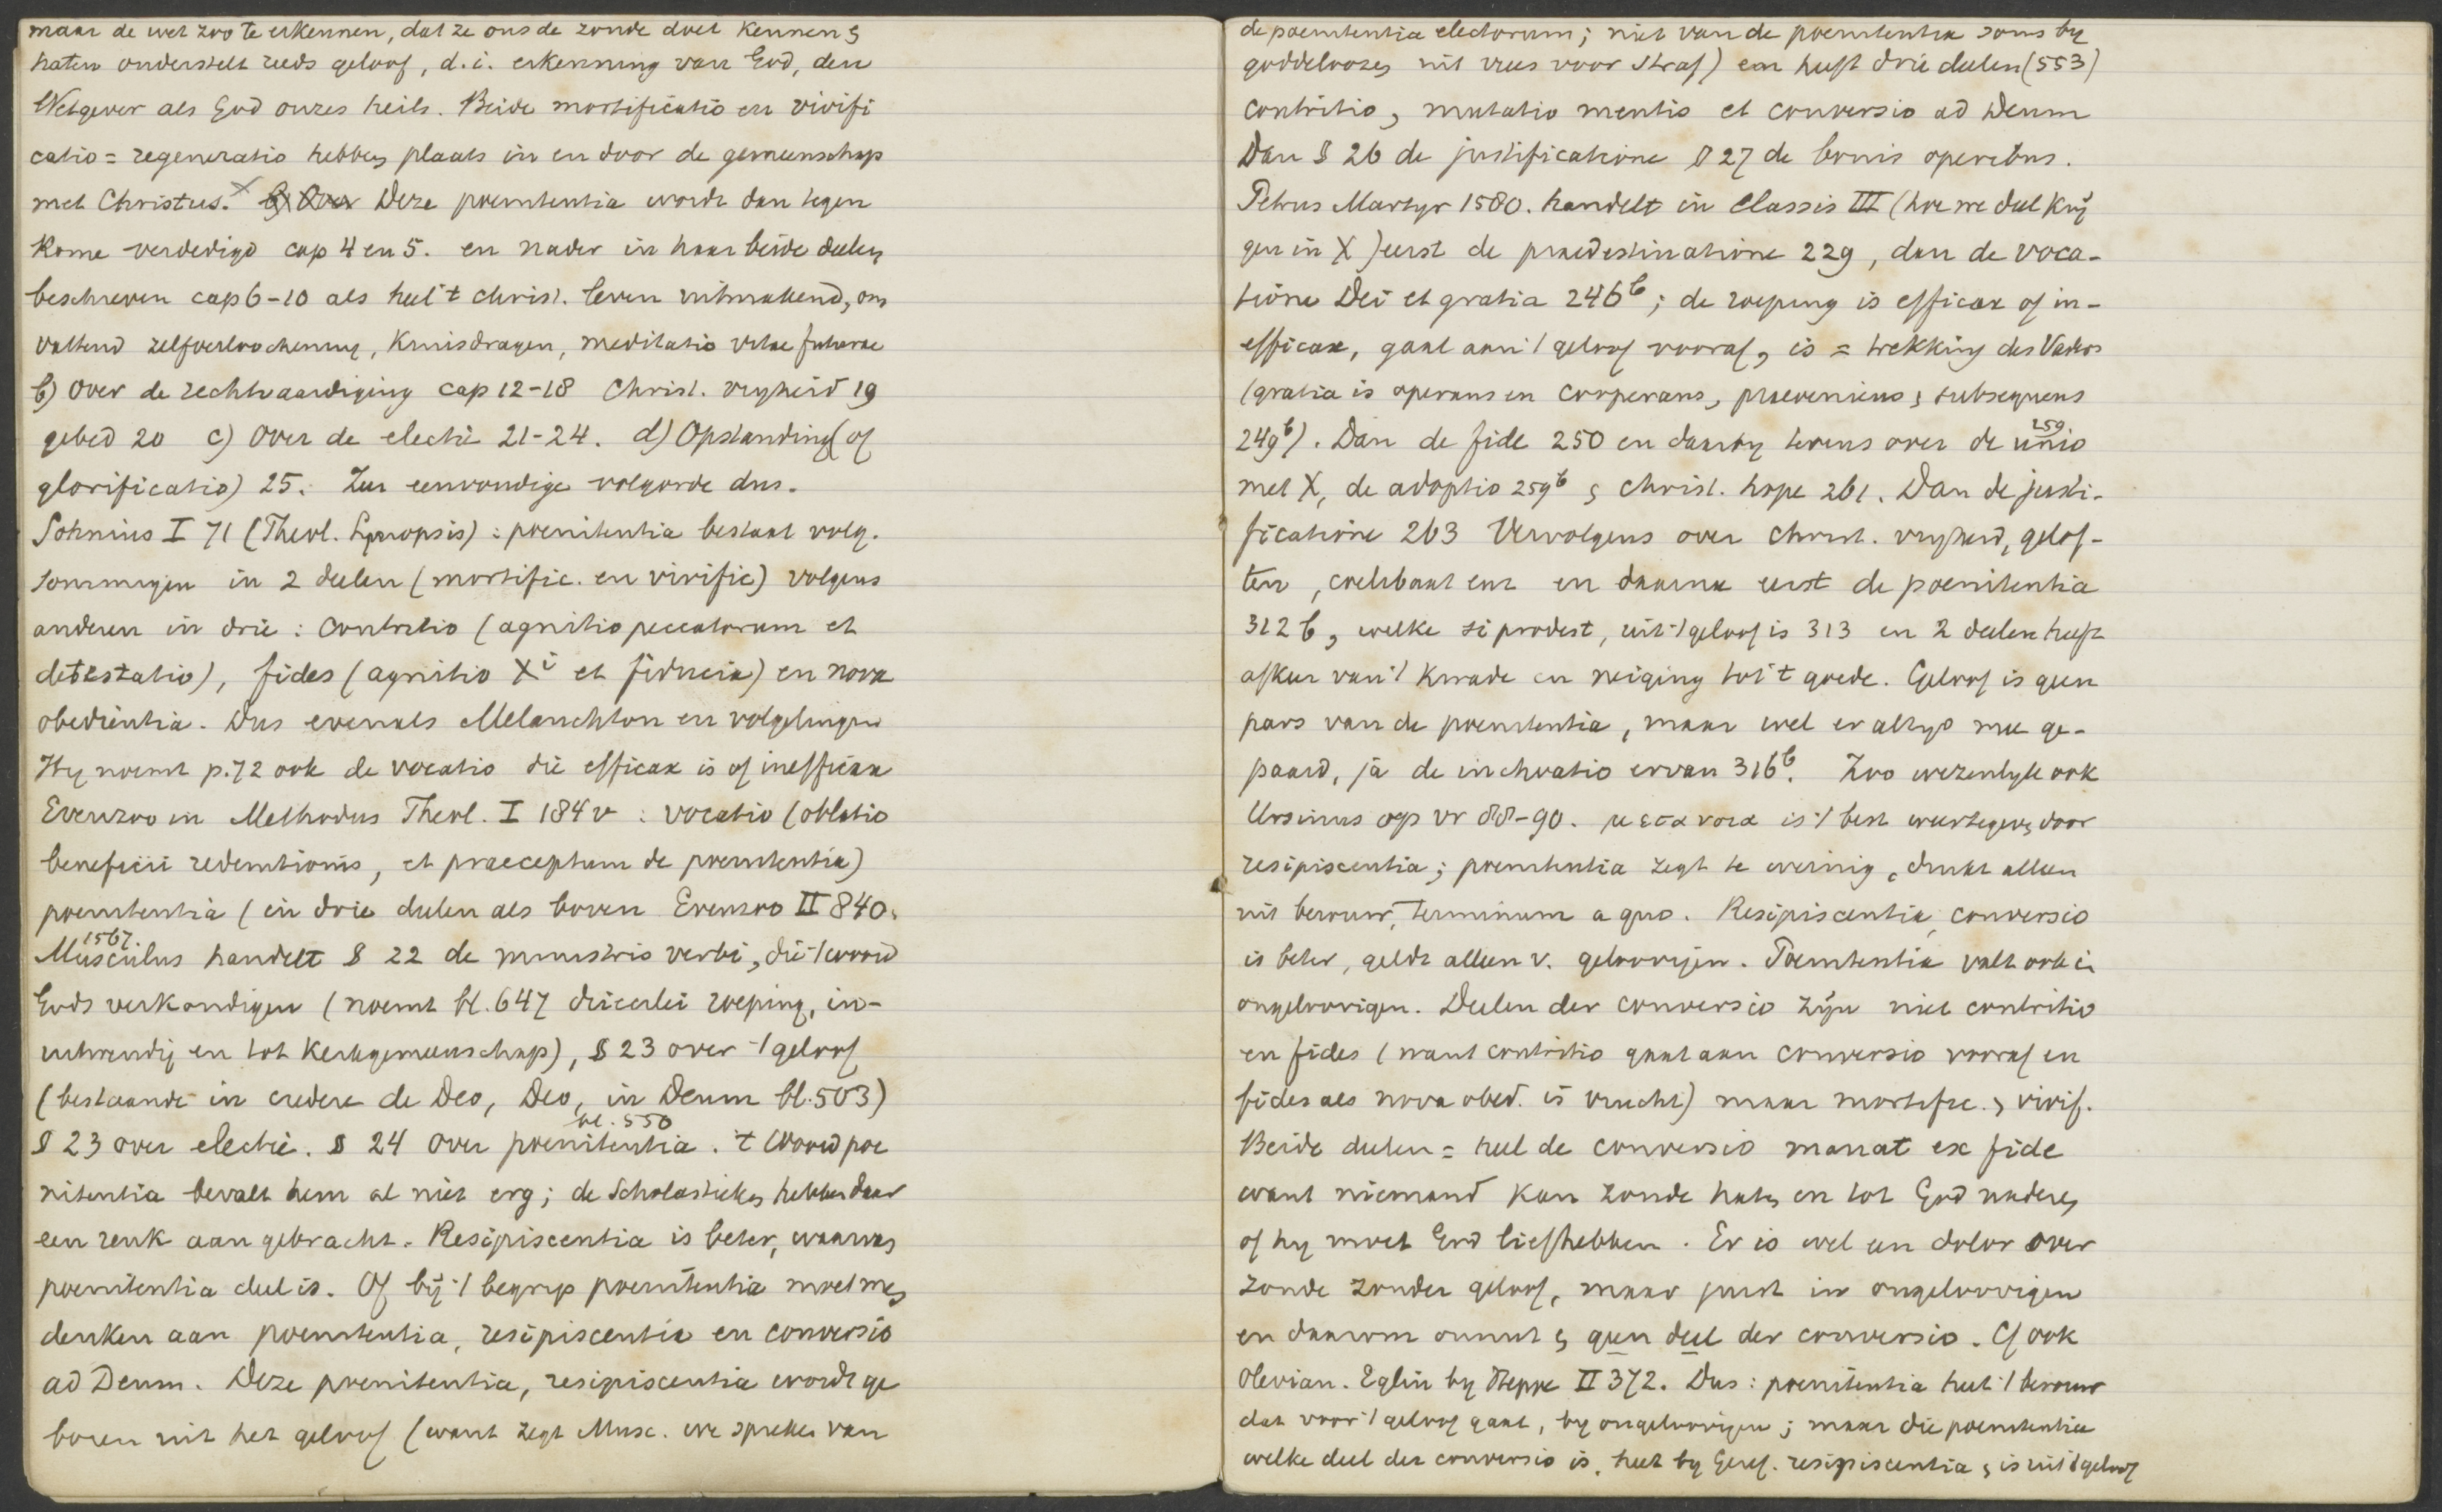 maar de wet zoo te erkennen, dat ze ons de zonde doet kennen &
haten onderstelt reeds geloof, d.i. erkenning van God, den
Wetgever als God onzes heils. Beide mortificatio en vivifi
catio = regeneratio hebben plaats in en door de gemeenschap
met Christus. Deze poenitentia wordt dan tegen
Rome verdedigd cap 4 en 5. en nader in haar beide deelen
beschreven cap 6-10 als heel 't christ. leven uitmakend, om
vattend zelfverloochening, kruisdragen, meditatio vitae futurae
b) Over de rechtvaardiging cap 12-18 Christ. vryheid 19
gebed 20 c) Over de electie 21-24. d) Opstanding (of
glorificatio) 25. Zeer eenvoudige volgorde dus.
Sohnius I 71 (Theol. Synopsis): poenitentia bestaat volg.
sommigen in 2 deelen (mortific. en vivific) volgens
anderen in drie: Contritio (agnitio peccatorum et
detestatio), fides (agnitio Xi et fiducia) en nova
obedientia. Dus evenals Melanchton en volgelingen
Hy noemt p. 72 ook de vocatio die efficax is of inefficax
Evenzoo in Methodus Theol. I 184 v : vocatio (oblatio
beneficii redemtionis, et praeceptum de poenitentia)
poenitentia (in drie deelen als boven Evenzoo II 840.
1567.
Musculus handelt § 22 de ministris verbi, die 't woord
Gods verkondigen (noemt bl. 647 drieerlei roeping, in-
uitwendig en tot kerkgemeenschap), § 23 over 't geloof
(bestaande in credere de Deo, Deo, in Deum bl. 503)
bl. 550
§ 23 over electie. § 24 over poenitentia. 't Woord poe
nitentia bevalt hem al niet erg; de Scholastieken hebben daar
een reuk aan gebracht. Resipiscentia is beter, waarvan
poenitentia deel is. Of bij 't begrip poenitentia moet men
denken aan poenitentia, resipiscentia en conversio
ad Deum. Deze poenitentia, resipiscentia wordt ge
boren uit het geloof (want zegt Musc. we spreken van
de poenitentia electorum; niet van de poenitentia soms by
goddeloozen uit vrees voor straf) en heeft drie deelen (553)
contritio, mutatio mentis et conversio ad Deum
Dan § 26 de justificatione § 27 de bonis operibus.
Petrus Martyr 1580. handelt in Classis III (hoe we deel krij
gen in X) eerst de praedestinatione 229, dan de voca-
tione Dei et gratia 246b; de roeping is efficax of in-
efficax, gaat aan 't geloof vooraf, is = trekking des Vaders
(gratia is operans en cooperans, praeveniens & subsequens
249b). Dan de fide 250 en daarby tevens over de unio 259
met X, de adoptio 259b & christ. hope 261. Dan de justi-
ficatione 263 Vervolgens over christ. vryheid, gelof-
ten, coelibaat enz en daarna eerst de poenitentia
312 b, welke si prodest, uit 't geloof is 313 en 2 deelen heeft
afkeer van 't kwade en neiging tot 't goede. Geloof is geen
pars van de poenitentia, maar wel er altyd mee ge-
paard, ja de inchoatio ervan 316b. Zoo wezenlyk ook
Ursinus op vr 88-90. μετανοια is 't best weertegeven door
resipiscentia; poenitentia zegt te weinig, drukt alleen
uit berouw, terminum a quo. Resipiscentia, conversio
is beter, geldt alleen v. geloovigen. Poenitentia valt ook in
ongeloovigen. Deelen der conversio zijn niet contritio
en fides (want contritio gaat aan conversio vooraf en
fides als nova obed. is vrucht) maar mortific. & vivif.
Beide deelen = heel de conversio manat ex fide
want niemand kan zonde haten en tot God naderen
of hy moet God liefhebben. Er is wel een dolor over
zonde zonder geloof, maar juist in ongeloovigen
en daarom onnut & geen deel der conversio. Cf ook
Olevian. Eglin by Heppe II 372. Dus: poenitentia heet 't berouw
dat voor 't geloof gaat, by ongeloovigen; maar die poenitentia
welke deel der conversio is, heet by Geref. resipiscentia & is uit 't geloof